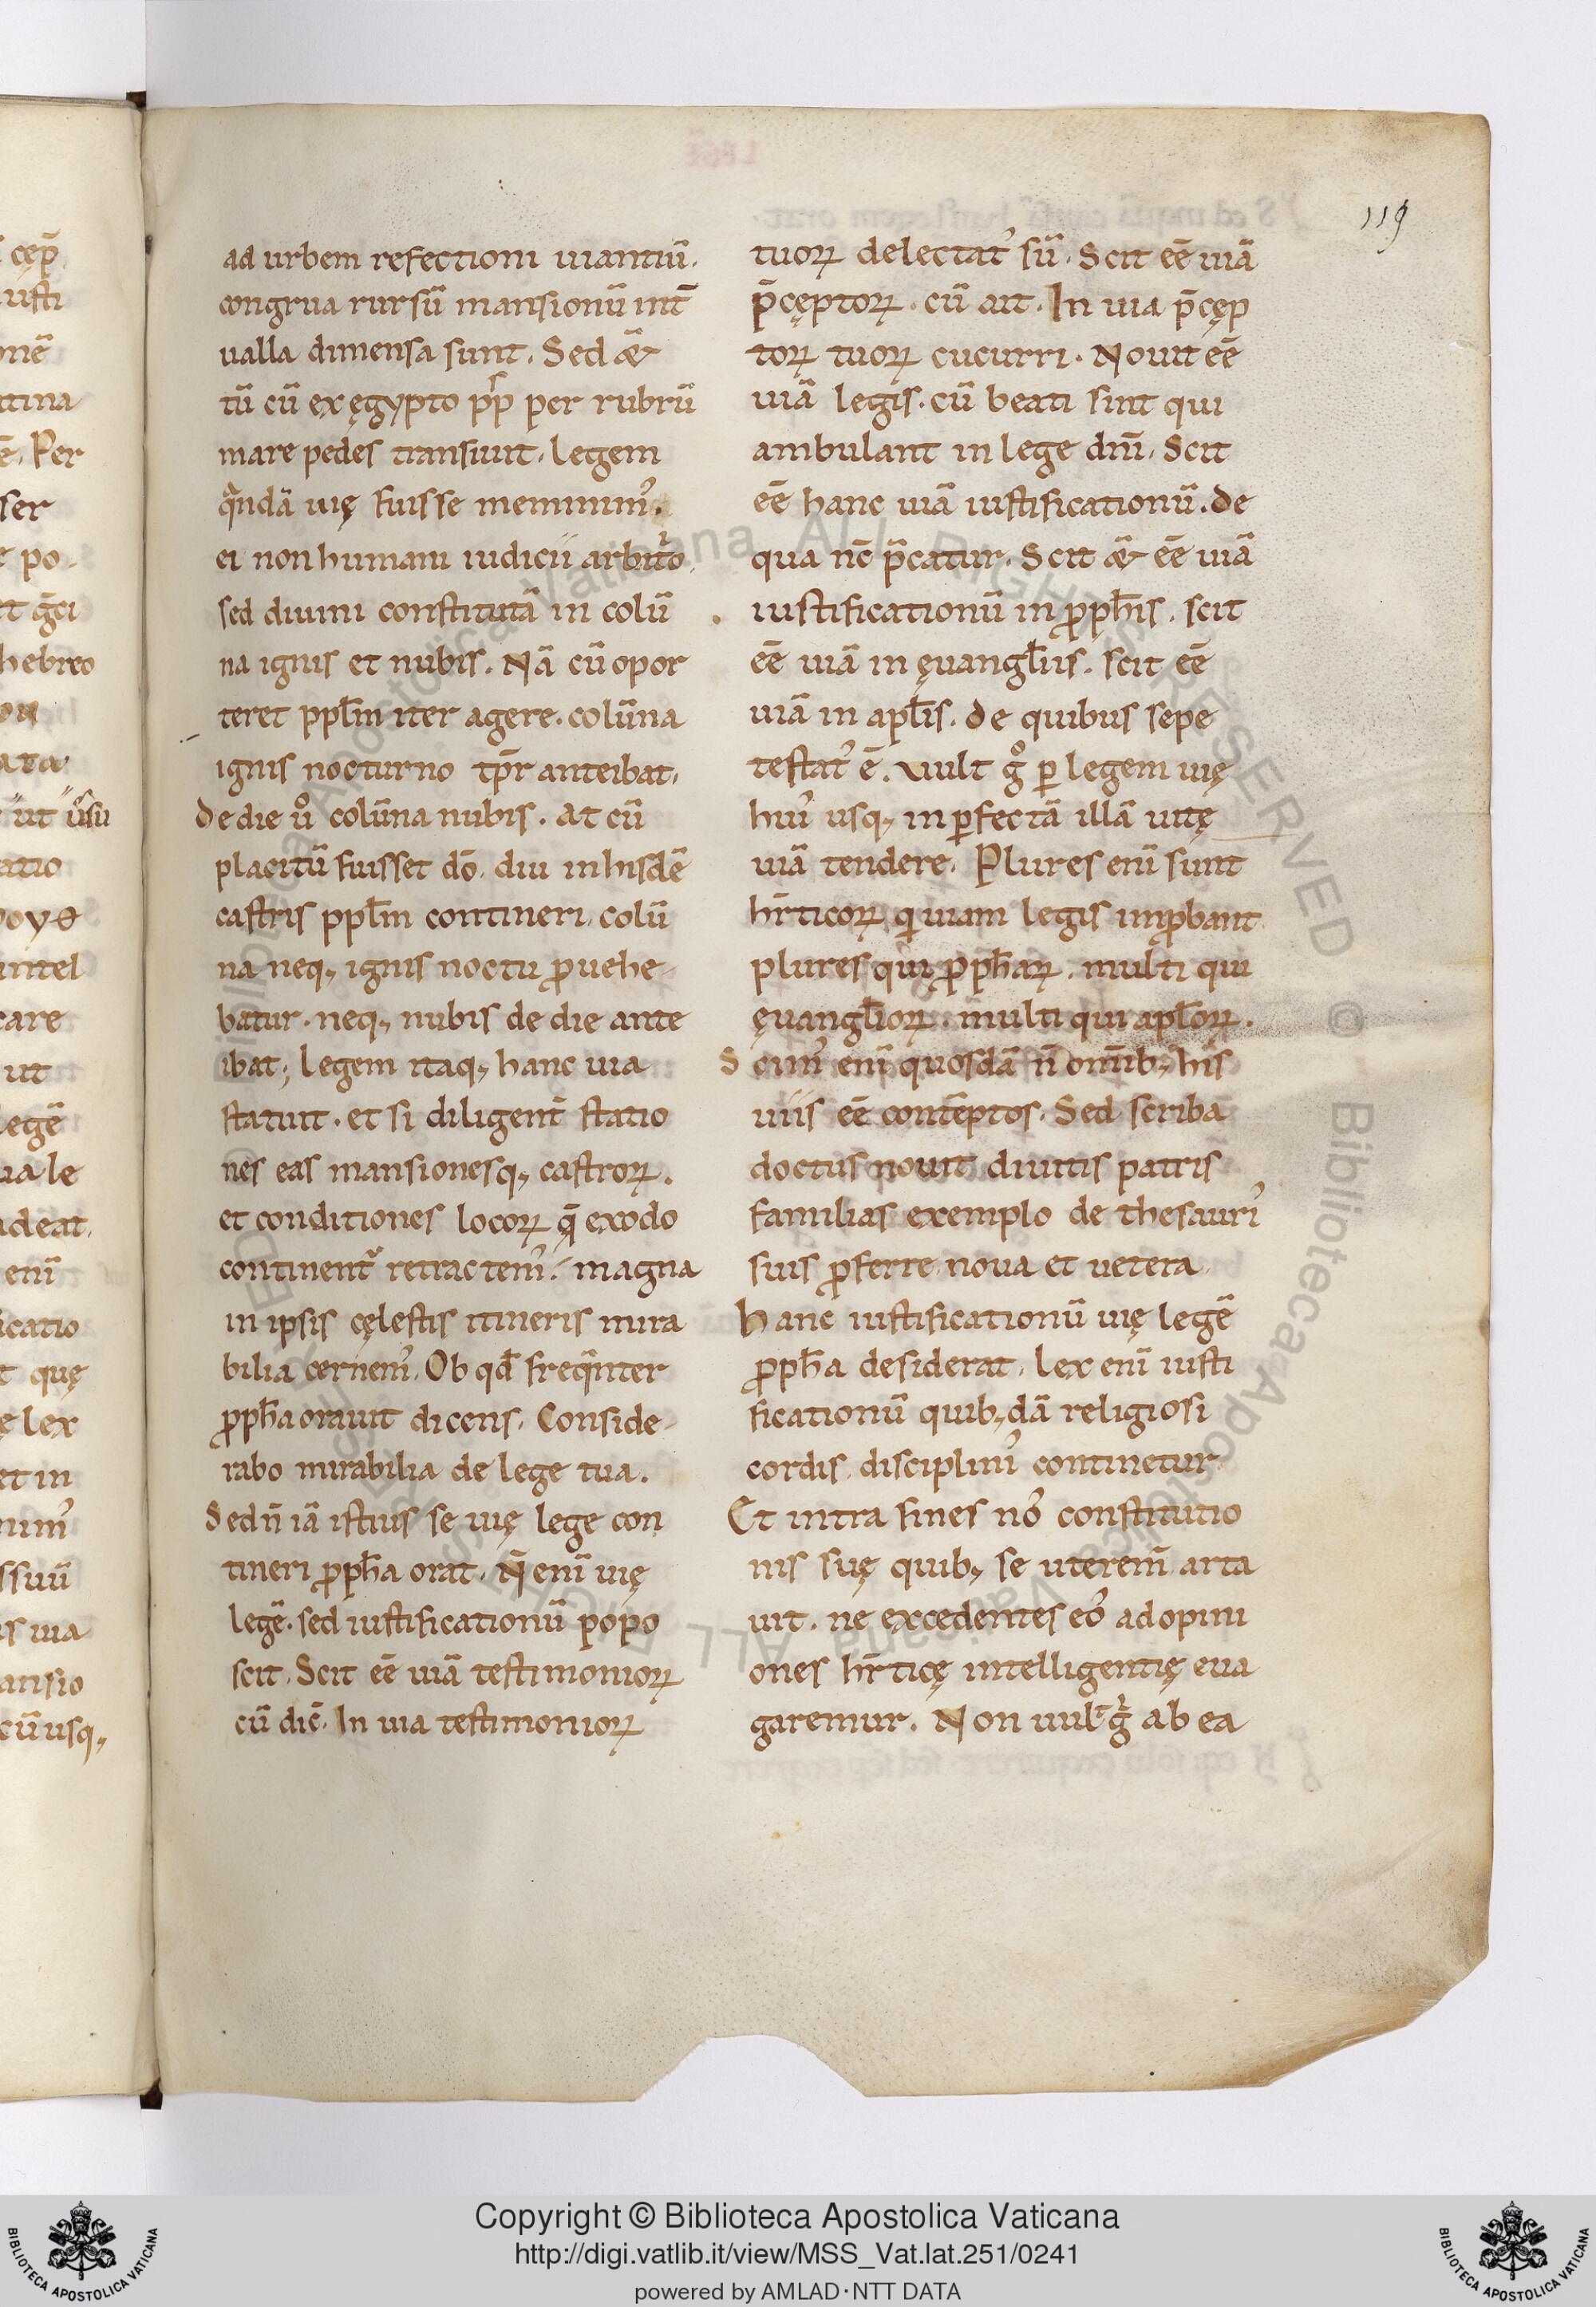 cęp̄
usti
nē
tina
ē. Per
ser
po-
t ḡci
hebreo
ut usū
atio
intel
care
ut
legē
ua le
adeat.
enī
icatio
t quę
e lex
et in
ssuū
s uia
ansio
cū usq;
119
ad urbem refectioni uiantiū.
congrua rursū mansionū int̄
ualla dimensa sunt. Sed &̄
tū cū ex ęgypto pp̄ per rubrū
mare pedes transiuit. legem
quandā uię fuisse meminim᾿.
ei non humani iudicii arbit̄o.
sed diuini constitutā in colū
na ignis et nubis. Nā cū opor
teret ppl̄m iter agere. colūna
ignis nocturno tp̄r anteibat.
de die ů colūna nubis. at cū
placitū fuisset dō. diu in hisdē
castris ppl̄m contineri. colū
na neq; ignis noctu ꝓuehe-
batur. neq; nubis de die ante
ibat; legem itaq; hanc uia
statuit. et si diligent̄ statio
nes eas mansionesq; castroꝝ.
et conditiones locoꝝ q̄ exodo
continent̃ retractem᾿. magna
in ipsis cęlestis itineris mira
bilia cernem᾿. Ob qd̄ freq̄nter
ꝓph̄a orauit dicens. Conside-
rabo mirabilia de lege tua.
Sed n̄ iā istius se uię lege con
tineri ꝓph̄a orat. N̄ enī uię
legē. sed iustificationū popo
scit. Scit eē uiā testimonioꝝ
cū dic̄. In uia testimonioꝝ
tuoꝝ delectat᾿ sū. Scit eē uiā
p̄cęptoꝝ. cū ait. In uia p̄cęp
toꝝ tuoꝝ cucurri. Nouit eē
uiā legis. cū beati sint qui
ambulant in lege dnī. Scit
eē hanc uiā iustificationū. de
qua nc̄ p̄catur. Scit &̄ eē uiā
iustificationū in ꝓph̄is. scit
eē uiā in ęuangl̄iis. scit eē
uiā in apl̄is. de quibus sepe
testat᾿ ē. Uult g̊ ꝑ legem uię
hui᾿ usq; in ꝑfectā illā uitę
uiā tendere. Plures enī sunt
hr̄ticoꝝ qui uiam legis imꝓbant
plures qui ꝓph̄aꝝ. multi qui
ęuangl̄ioꝝ. multi qui apl̄oꝝ.
Scim᾿ enī quosdā n̄ omīb; his
uiis eē contēptos. Sed scriba
doctus nouit diuitis patris
familias exemplo de thesauri᾿
suis ꝓferre noua et uetera
hanc iustificationū uię legē
ꝓph̄a desiderat. lex enī iusti
ficationū quib;dā religiosi
cordis disciplini᾿ continetur
Et intra fines no᾿ constitutio
nis suę quib; se uterem̄ arta
uit. ne excedentes eo᾿ ad opini
ones hr̄ticę intelligentię eua
garemur. Non uult g̊ ab ea
Copyright © Biblioteca Apostolica Vaticana
http://digi.vatlib.it/view/MSS_Vat.lat.251/0241
powered by AMLAD·NTT DATA